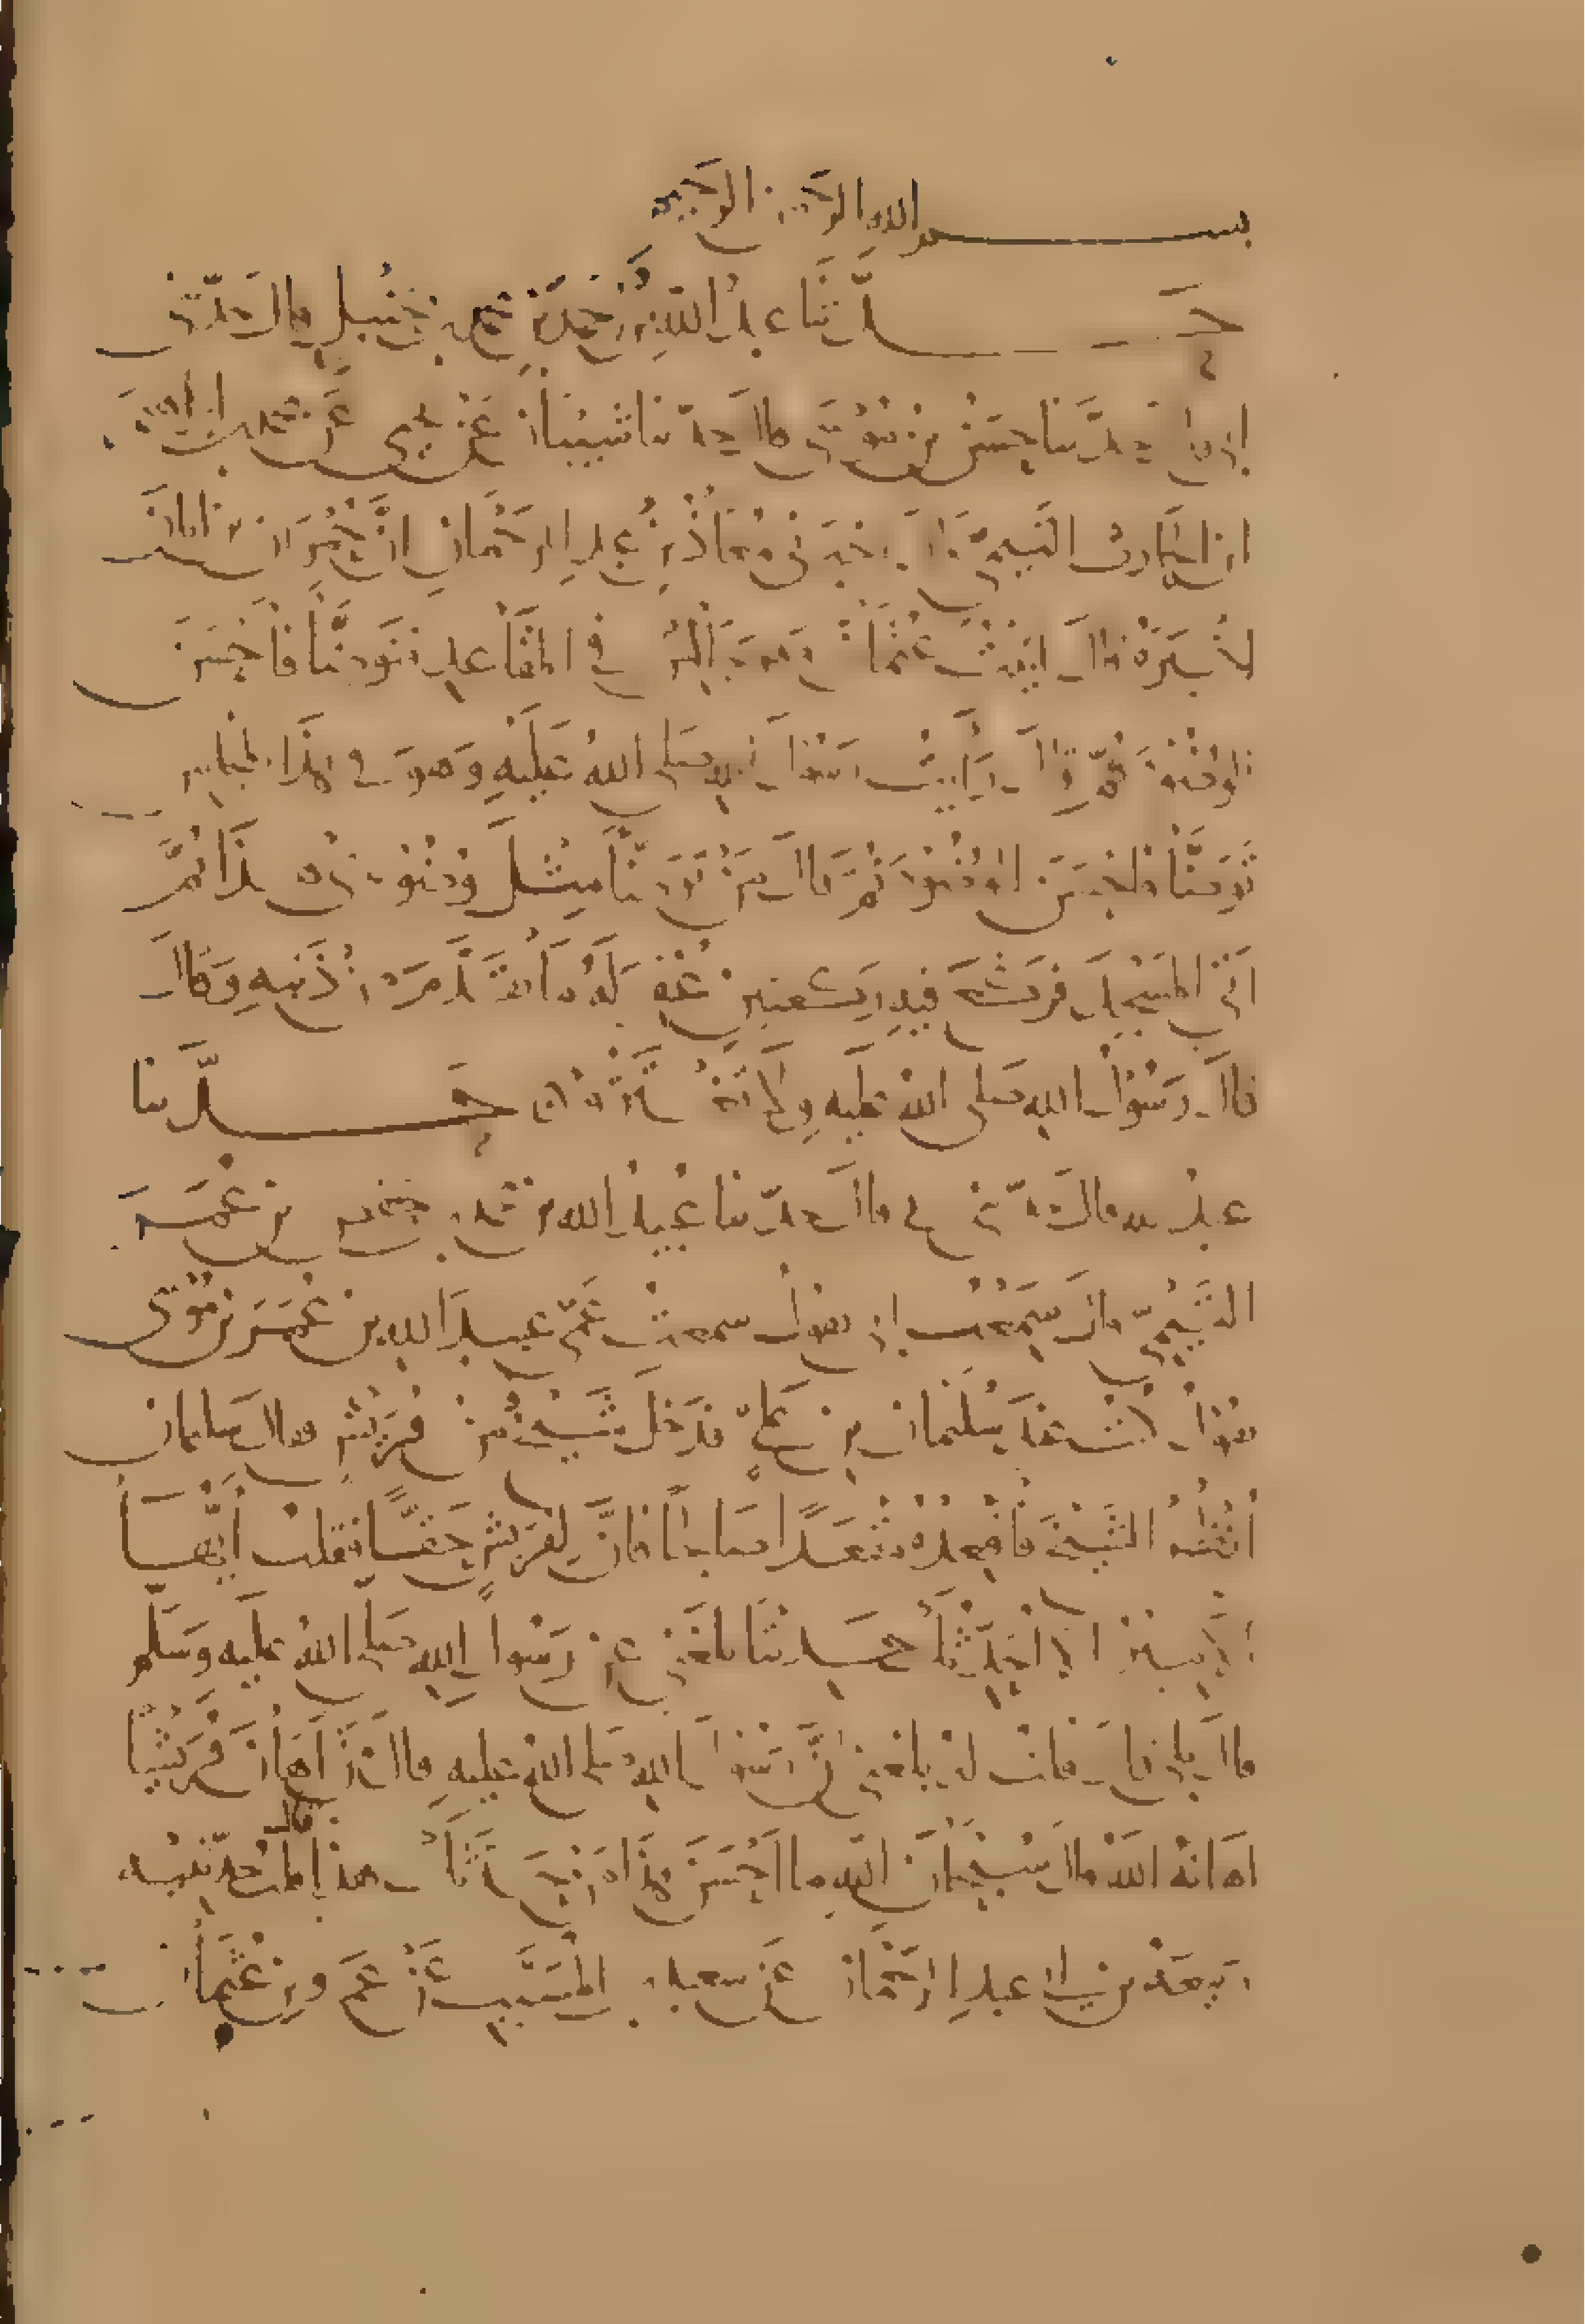 بسم الله الرحمن الرحيم
حدثنا عبد الله بن أحمد بن محمد بن حنبل قال حدثني
أبي قال حدثنا حسن بن موسى قال حدثنا شيبان عن يحيى عن محمد بن إبراهيم
ابن الحارث التيمي قال أخبرني معاذ بن عبد الرحمان أن حمران بن أبان
أخبره قال أتيت عثمان وهو جالس في المقاعد فتوضأ فأحسن
الوضوء ثم قال رأيت رسول الله صلى الله عليه وهو في هذا المجلس
توضأ فأحسن الوضوء ثم قال من توضأ مثل وضوئي هذا ثم
أتى المسجد فركع فيه ركعتين غفر له ما تقدم من ذنبه وقال
قال رسول الله صلى الله عليه ولا تغتروا حدثنا
عبد الله قال حدثني أبي قال حدثنا عبيد الله بن محمد بن حفص بن عمر
التيمي قال سمعت أبي يقول سمعت عمي عبيد الله بن عمر بن موسى
يقول كنت عند سليمان بن علي فدخل شيخ من قريش فقال سليمان
انظر الشيخ فأقعده مقعدا صالحا فإن لقريش حقا فقلت أيها
الأمير ألا أحدثك حديثا بلغني عن رسول الله صلى الله عليه وسلم
قال بلى قال قلت له بلغني أن رسول الله صلى الله عليه قال من أهان قريشا
أهانه الله قال سبحان الله ما أحسن هذا من حدثك هذا قال قلت حدثنيه
ربيعة بن أبي عبد الرحمان عن سعيد بن المسيب عن عمرو بن عثمان